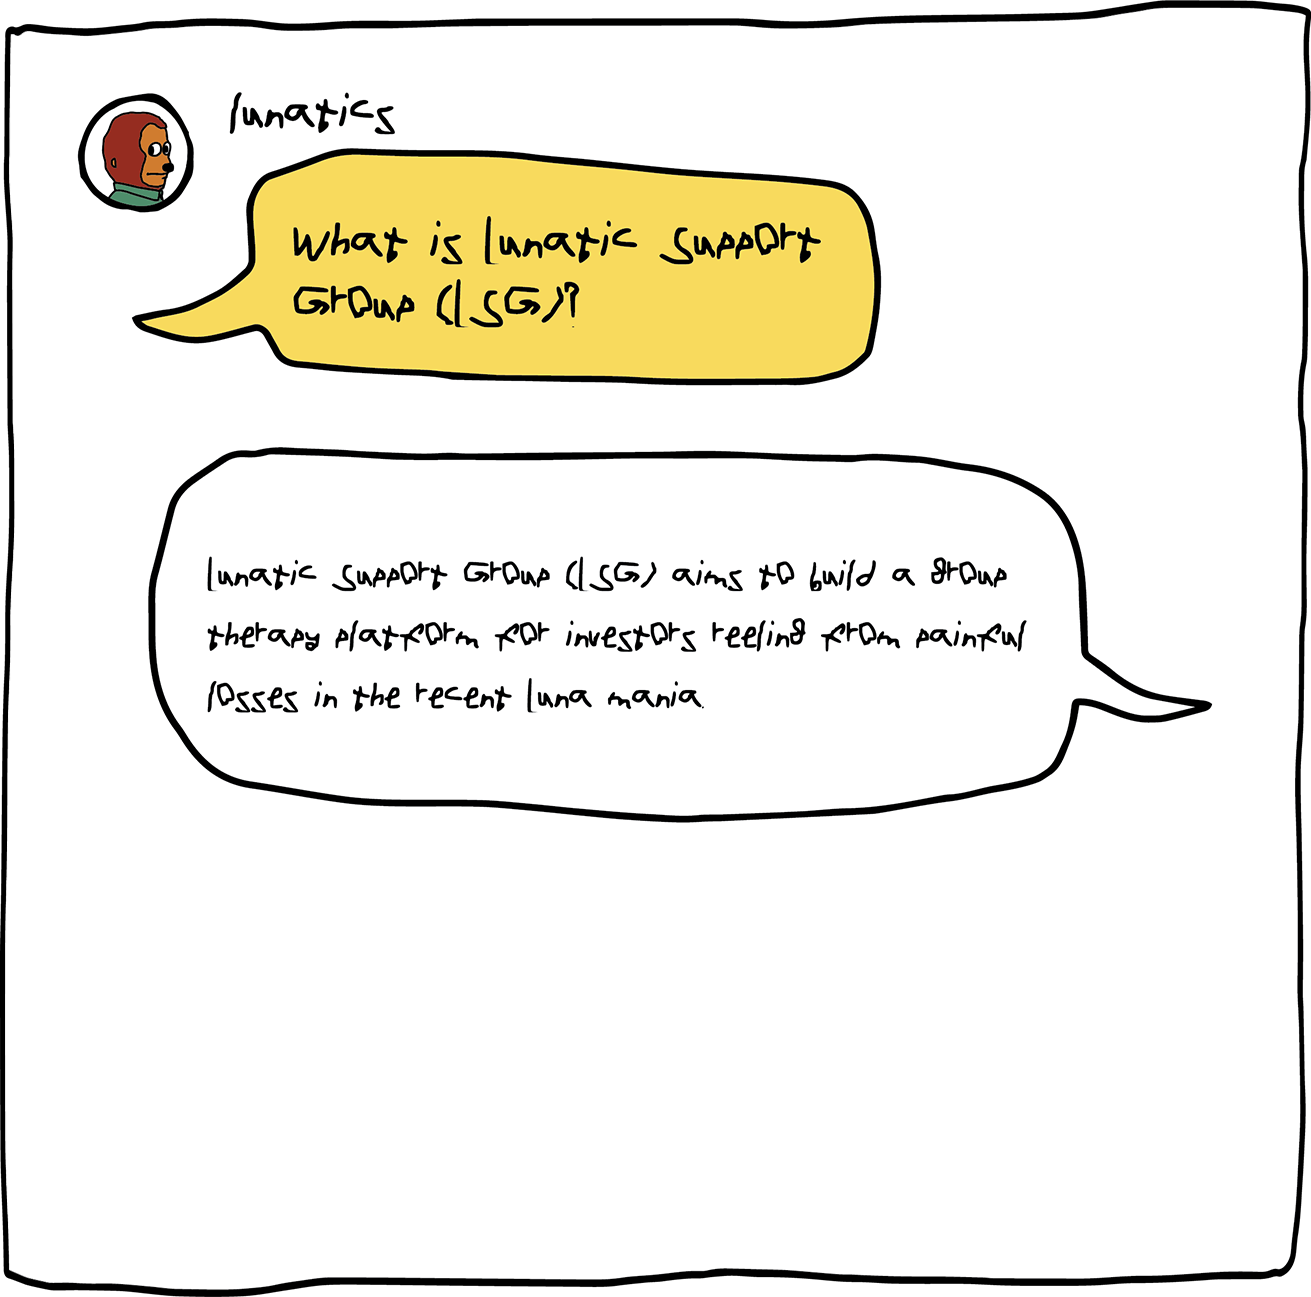 lunatics
What is Lunatic Support
Group (LSG)?
Lunatic Support Group (LSG) aims to build a group
therapy platform for investors reeling from painful
losses in the recent Luna mania.